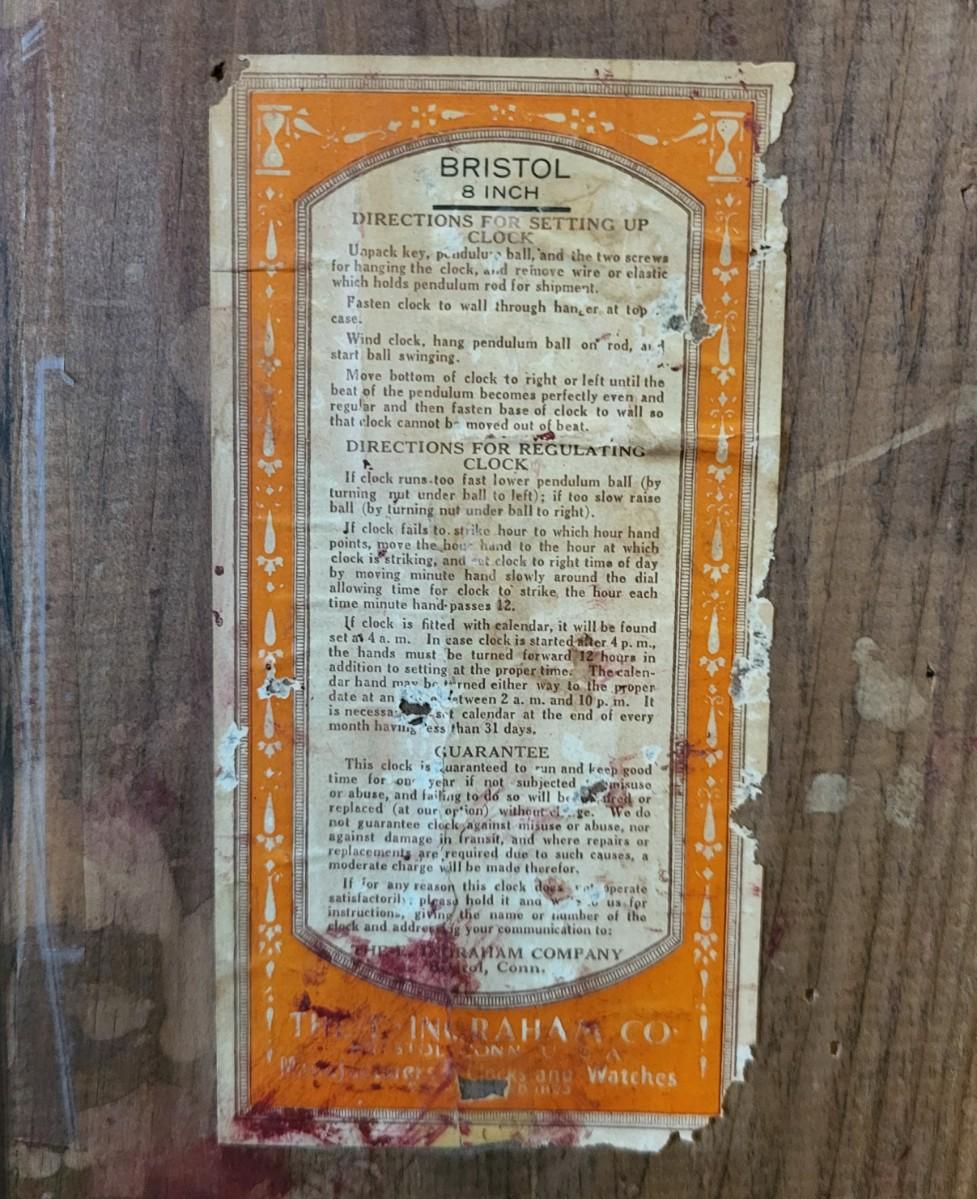 BRISTOL
8 INCH
DIRECTIONS FOR SETTING UP
CLOCK
Unpack key, pendulum ball, and the two screws
for hanging the clock, and remove wire or elastic
which holds pendulum rod for shipment.
Fasten clock to wall through hanger at top
case.
Wind clock, hang pendulum ball on rod, and
start ball swinging.
Move bottom of clock to right or left until the
beat of the pendulum becomes perfectly even and
regular and then fasten base of clock to wall so
that clock cannot be moved out of beat.
DIRECTIONS FOR REGULATING
CLOCK
If clock runs too fast lower pendulum ball (by
turning nut under ball to left); if too slow raise
ball (by turning nut under ball to right).
If clock fails to strike hour to which hour hand
points, move the hour hand to the hour at which
clock is striking, and set clock to right time of day
by moving minute hand slowly around the dial
allowing time for clock to strike the hour each
time minute hand passes 12.
If clock is fitted with calendar, it will be found
set at 4 a. m. In case clock is started after 4 p. m.,
the hands must be turned forward 12 hours in
addition to setting at the proper time. The calen-
dar hand may be turned either way to the proper
date at an between 2 a. m. and 10 p. m. It
is necessary set calendar at the end of every
month having less than 31 days.
GUARANTEE
This clock is guaranteed to run and keep good
time for one year if not subjected misuse
or abuse, and failing to do so will be or
replaced (at our option) without charge. We do
not guarantee clock against misuse or abuse, nor
against damage in transit, and where repairs or
replacements are required due to such causes, a
moderate charge will be made therefor.
If for any reason this clock does not operate
satisfactorily please hold it and to us for
instructions, giving the name or number of the
clock and addressing your communication to:
THE E. INGRAHAM COMPANY
Bristol, Conn.
THE E. INGRAHAM CO.
BRISTOL CONN. U. S. A.
Manufacturers Clocks and Watches